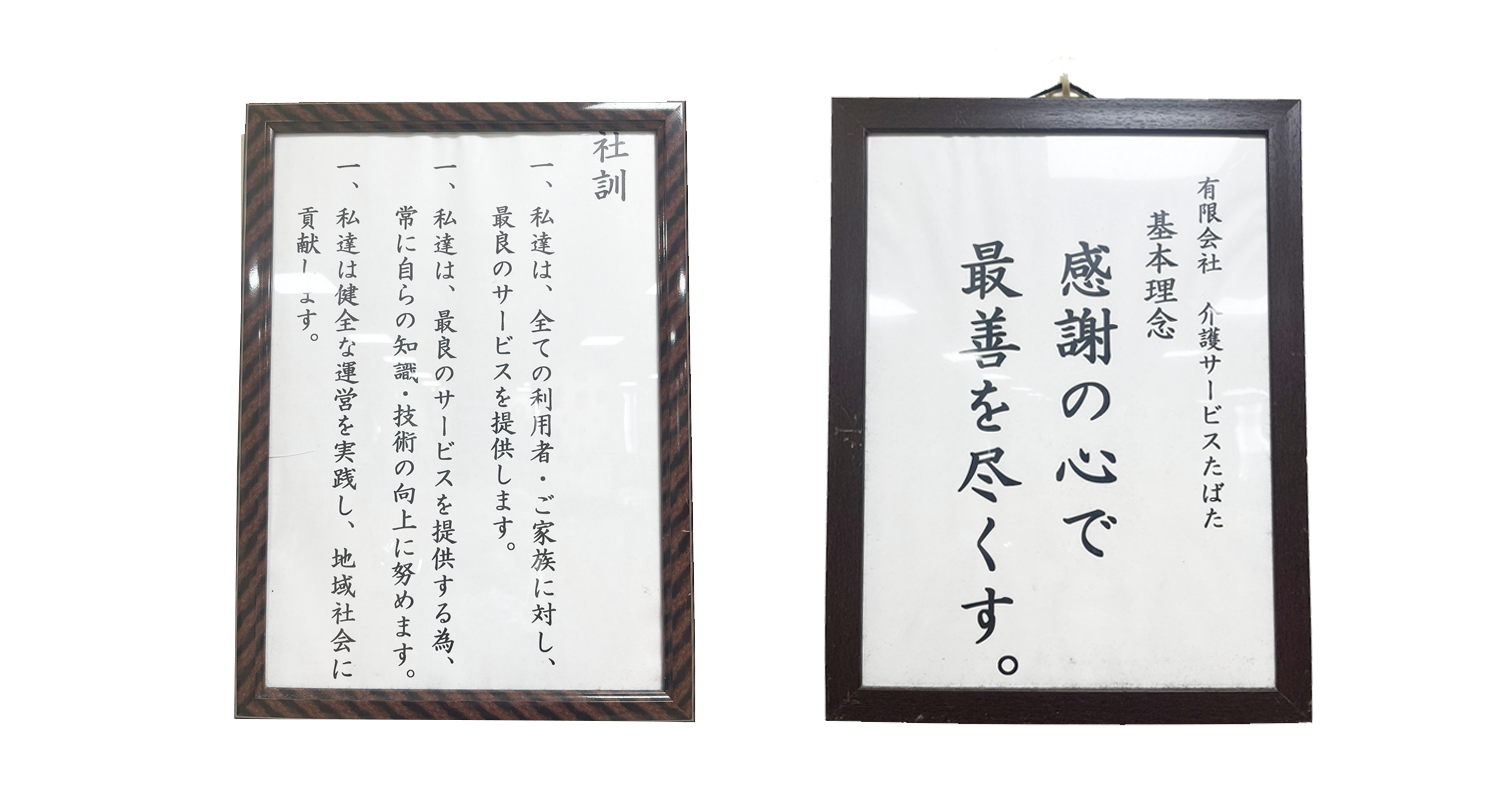 社訓
一、私達は、全ての利用者・ご家族に対し、
最良のサービスを提供します。
一、私達は、最良のサービスを提供する為、
常に自らの知識・技術の向上に努めます。
一、私達は健全な運営を実践し、地域社会に
貢献します。
有限会社 介護サービスたばた
基本理念
感謝の心で
最善を尽くす。